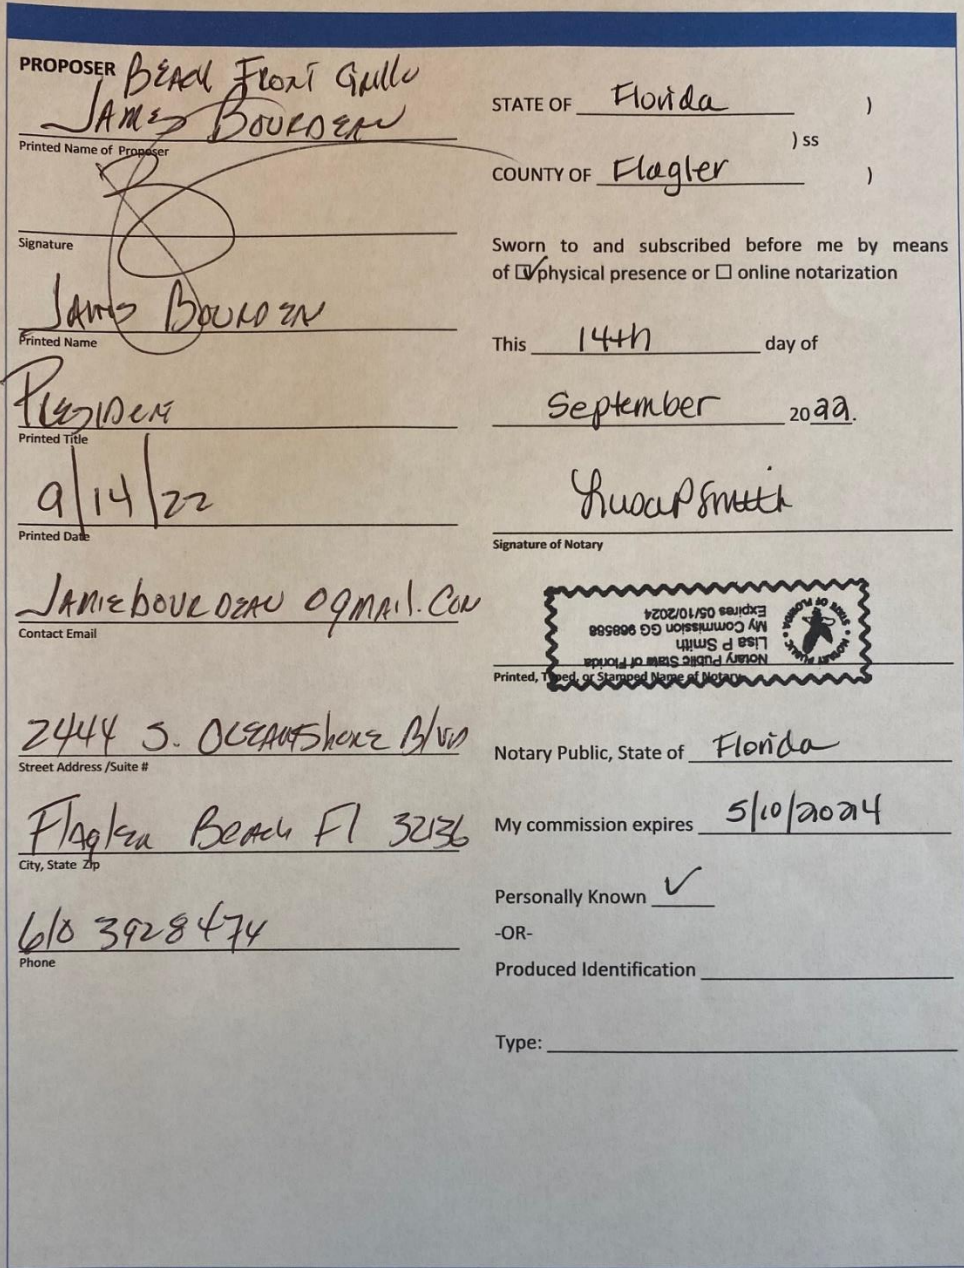 PROPOSER BEACH FRONT GRILLE
JAMES BOURDEAU
Printed Name of Proposer
Signature
JAMES BOURDEAU
Printed Name
PRESIDENT
Printed Title
9/14/22
Printed Date
JAMIEbOURDEAU @gMAIl.COM
Contact Email
2444 S. OCEANShORE Blvd
Street Address /Suite #
FlAglER BEACh Fl 32136
City, State Zip
610 3928474
Phone
STATE OF Florida )
) ss
COUNTY OF Flagler )
Sworn to and subscribed before me by means
of ☑ physical presence or ☐ online notarization
This 14th day of
September 2022.
Lisa P Smith
Signature of Notary
Notary Public State of Florida
Lisa P Smith
My Commission GG 968588
Expires 05/10/2024
NOTARY PUBLIC
STATE OF FLORIDA
Printed, Typed, or Stamped Name of Notary
Notary Public, State of Florida
My commission expires 5/10/2024
Personally Known ✓
-OR-
Produced Identification
Type: